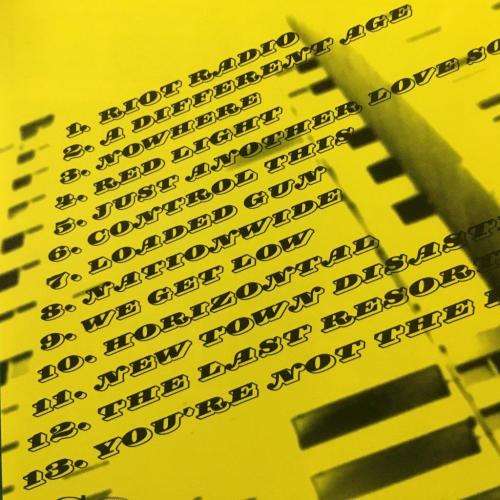 1. RIOT RADIO
2. A DIFFERENT AGE
3. NOWHERE
4. RED LIGHT
5. JUST ANOTHER LOVE SO
6. CONTROL THIS
7. LOADED GUN
8. NATIONWIDE
9. WE GET LOW
10. HORIZONTAL
11. NEW TOWN DISAST
12. THE LAST RESOR
13. YOU'RE NOT THE